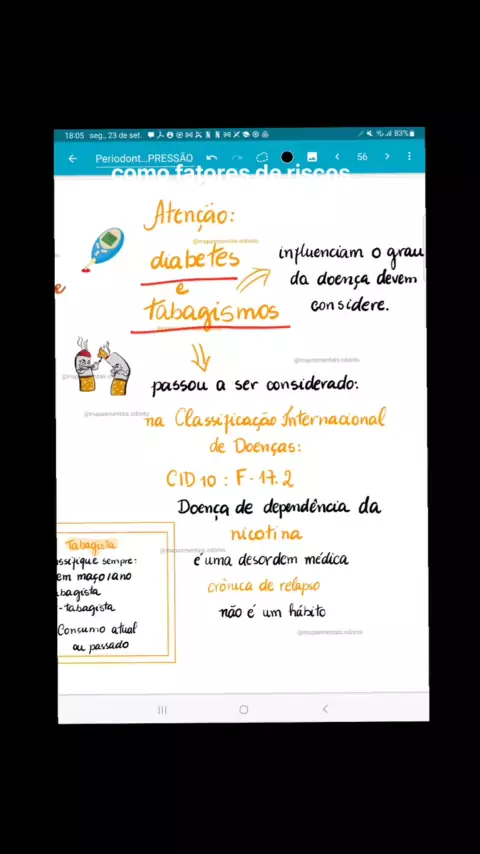 18:05 seg., 23 de set.
83%
Periodont...PRESSÃO
56
como fatores de riscos
Atenção:
@mapasmentais.odonto
diabetes
e
tabagismos
influenciam o grau
da doença devem
considere.
@mapasmentais.odonto
passou a ser considerado:
@mapasmentais.odonto
na Classificação Internacional
de Doenças:
CID 10 : F-17.2
Doença de dependência da
nicotina
@mapasmentais.odonto
é uma desordem médica
crônica de relapso
não é um hábito
@mapasmentais.odonto
Tabagista
ssifique sempre:
em maço/ano
abagista
-tabagista
Consumo atual
ou passado